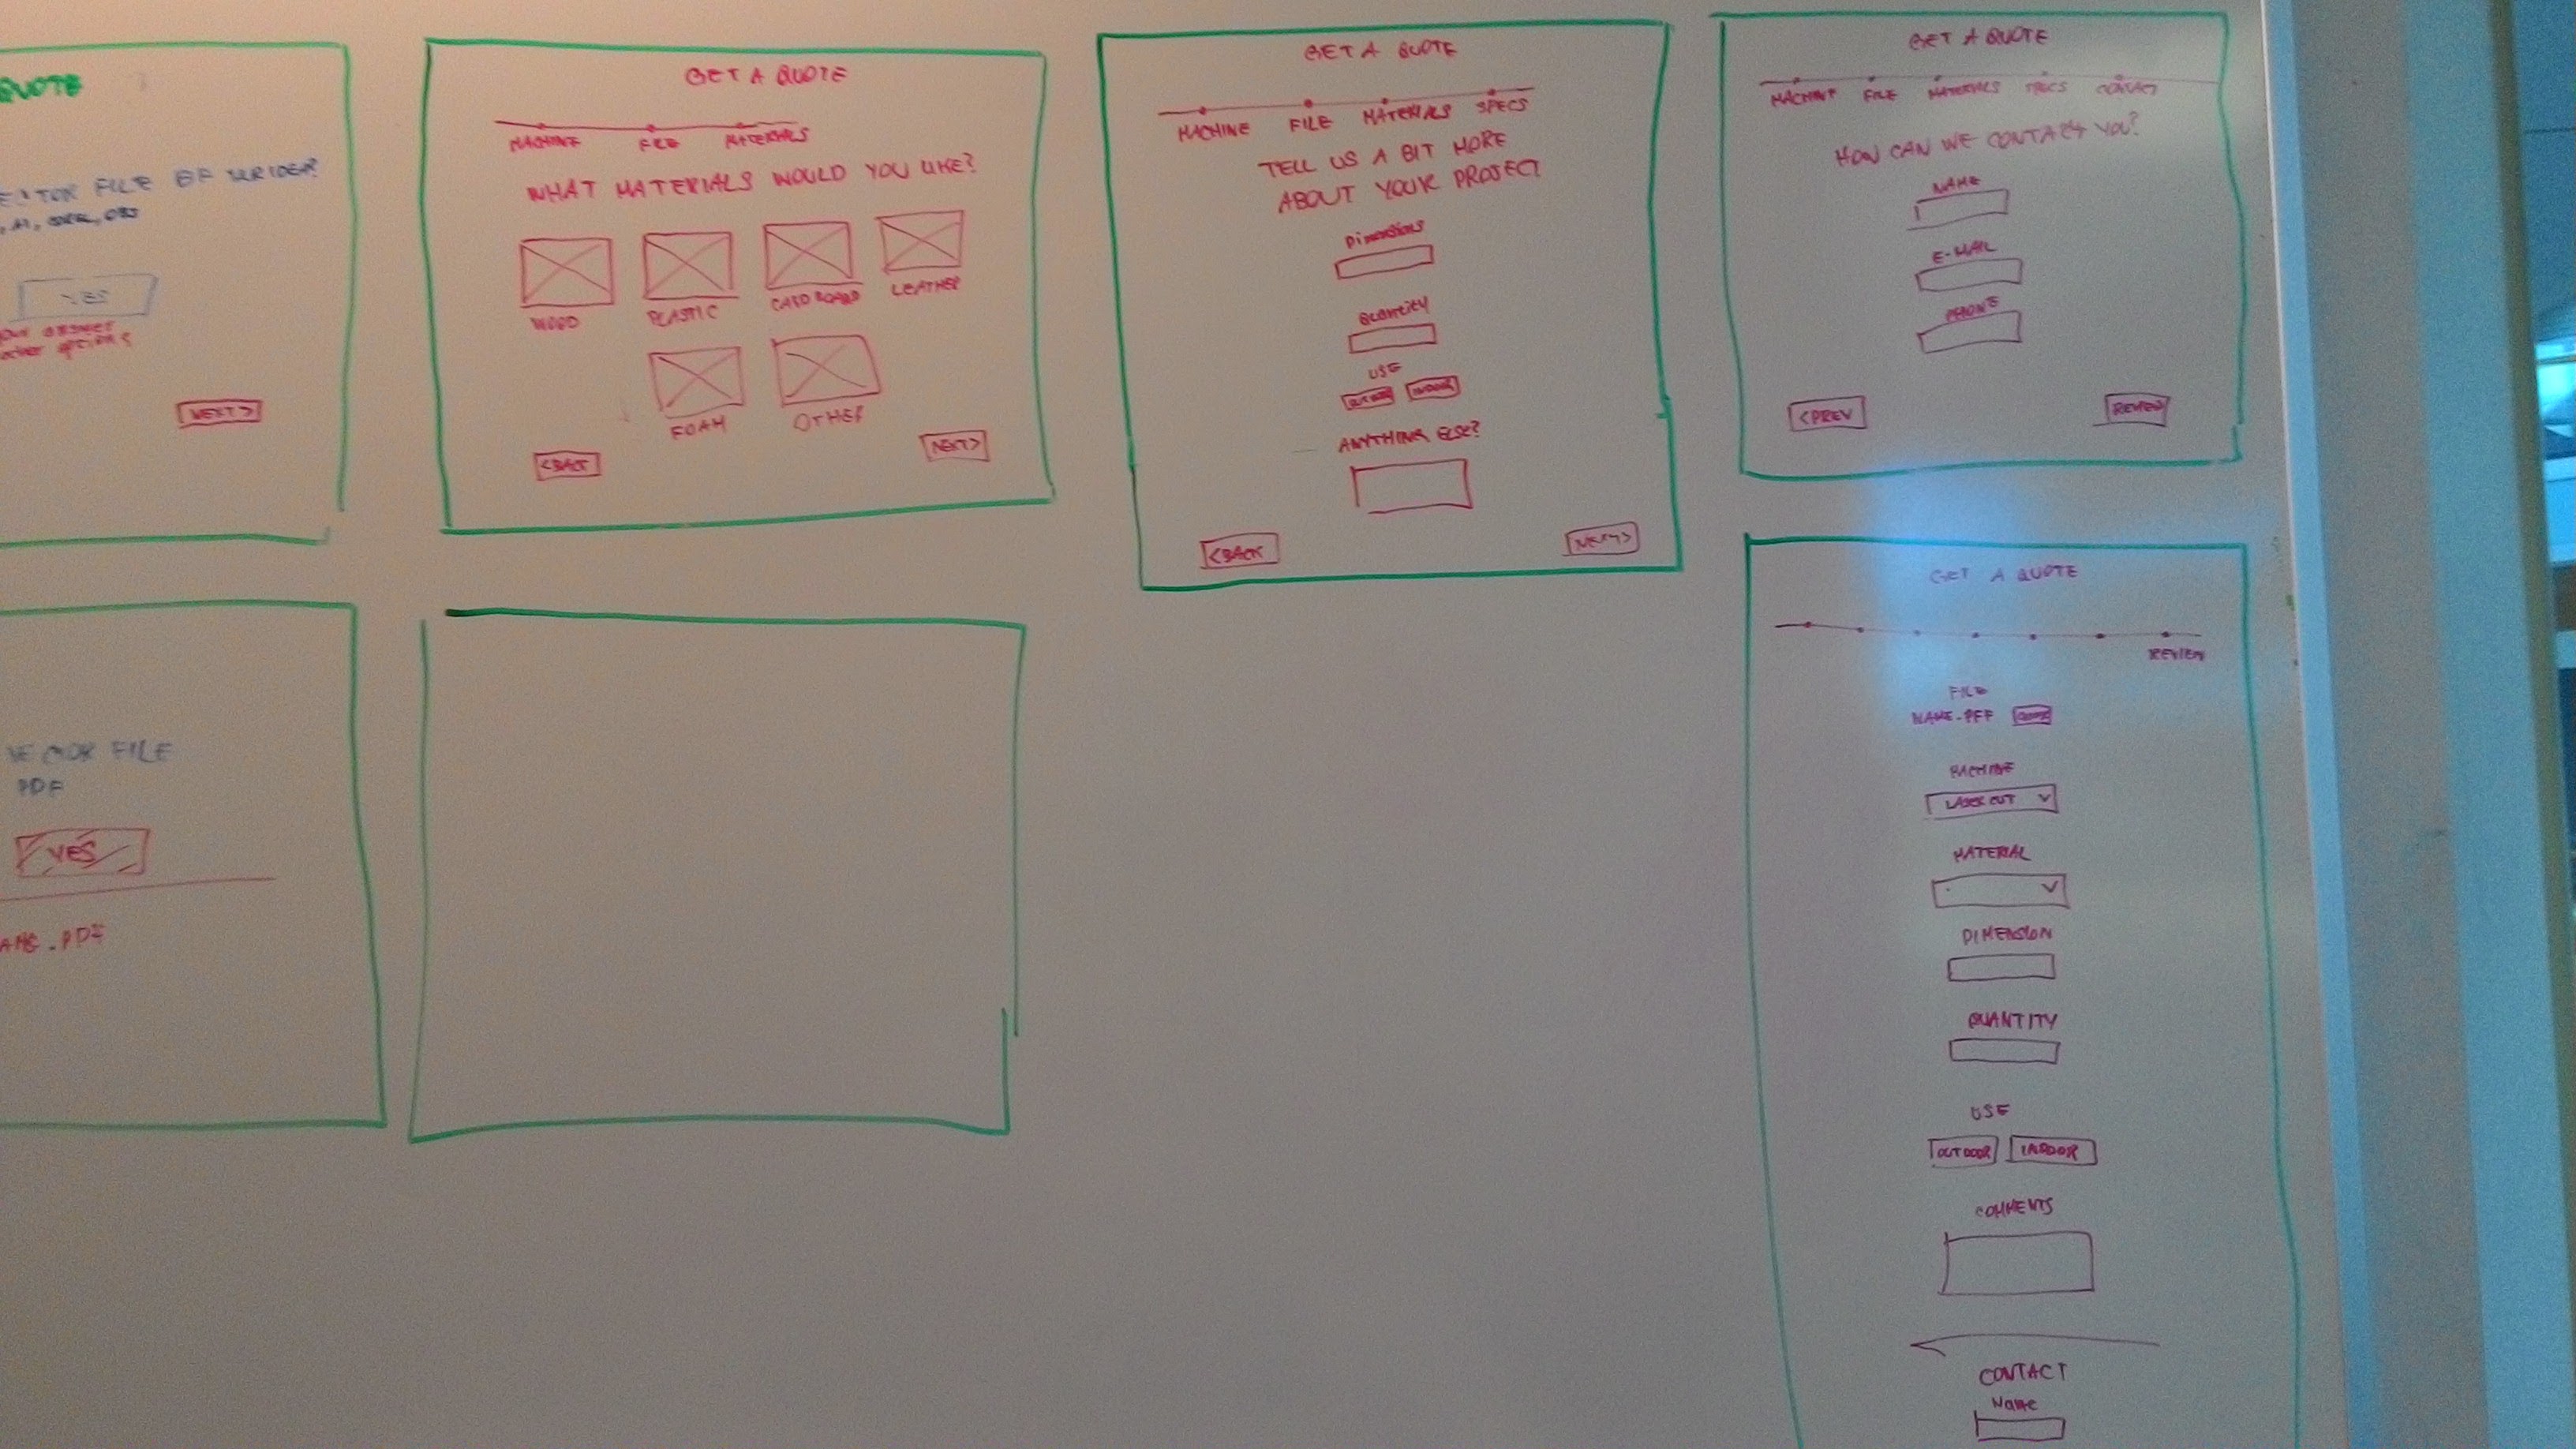 QUOTE
VECTOR FILE OF
YES
your
other options
NEXT >
GET A QUOTE
MACHINE FILE MATERIALS
WHAT MATERIALS WOULD YOU LIKE?
WOOD PLASTIC CARDBOARD LEATHER
FOAM OTHER
<BACK NEXT>
GET A QUOTE
MACHINE FILE MATERIALS SPECS
TELL US A BIT MORE
ABOUT YOUR PROJECT
Dimensions
Quantity
USE
OUTDOOR INDOOR
ANYTHING ELSE?
<BACK NEXT>
GET A QUOTE
MACHINE FILE MATERIALS SPECS CONTACT
HOW CAN WE CONTACT YOU?
NAME
E-MAIL
PHONE
<PREV REVIEW
VECTOR FILE
PDF
YES
AME.PDF
GET A QUOTE
REVIEW
FILE
NAME.PFF
MACHINE
LASER CUT V
MATERIAL
V
DIMENSION
QUANTITY
USE
OUTDOOR INDOOR
COMMENTS
CONTACT
Name